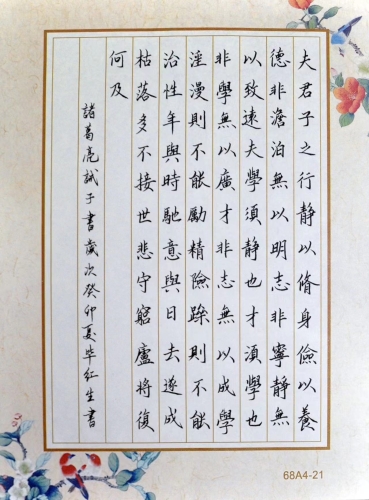 夫君子之行靜以脩身儉以養
德非澹泊無以明志非寧靜無
以致遠夫學須靜也才須學也
非學無以廣才非志無以成學
淫漫則不能勵精險躁則不能
治性年與時馳意與日去遂成
枯落多不接世悲守窮廬將復
何及
諸葛亮誡子書歲次癸卯夏毕红生書
68A4-21